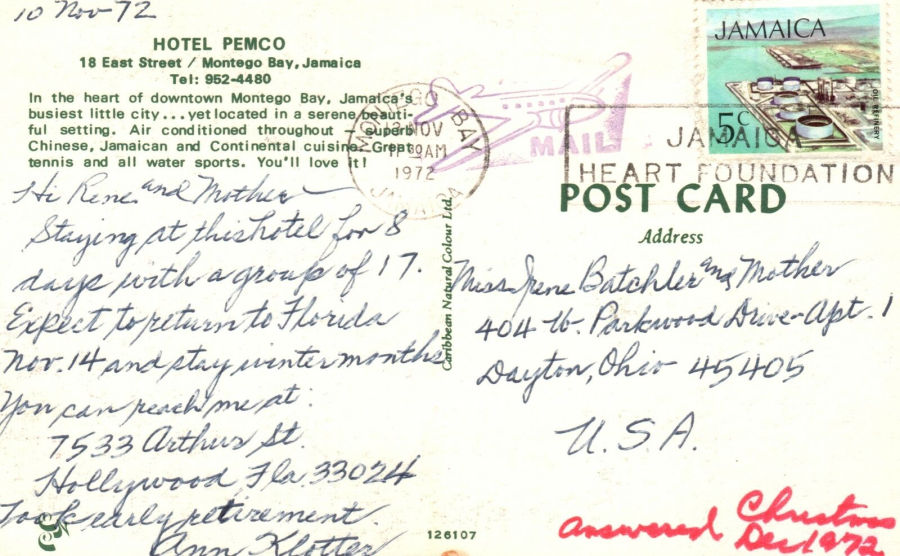 10 Nov-72
HOTEL PEMCO
18 East Street / Montego Bay, Jamaica
Tel: 952-4480
In the heart of downtown Montego Bay, Jamaica's
busiest little city...yet located in a serene, beauti-
ful setting. Air conditioned throughout superb
Chinese, Jamaican and Continental cuisine. Great
tennis and all water sports. You'll love it!
Hi Rene and Mother —
Staying at this hotel for 8
days with a group of 17.
Expect to return to Florida
Nov. 14 and stay winter months
You can reach me at:
7533 Arthur St.
Hollywood, Fla 33024
Took early retirement.
Ann Klotter
Caribbean Natural Colour Ltd.
126107
MONTEGO BAY
13 NOV
AM
1972
JAMAICA
MAIL
JAMAICA
5c
OIL REFINERY
JAMAICA
HEART FOUNDATION
POST CARD
Address
Miss Irene Batchler and Mother
404 W. Parkwood Drive-Apt. 1
Dayton, Ohio 45405
U.S.A.
answered Christmas
Dec 1972